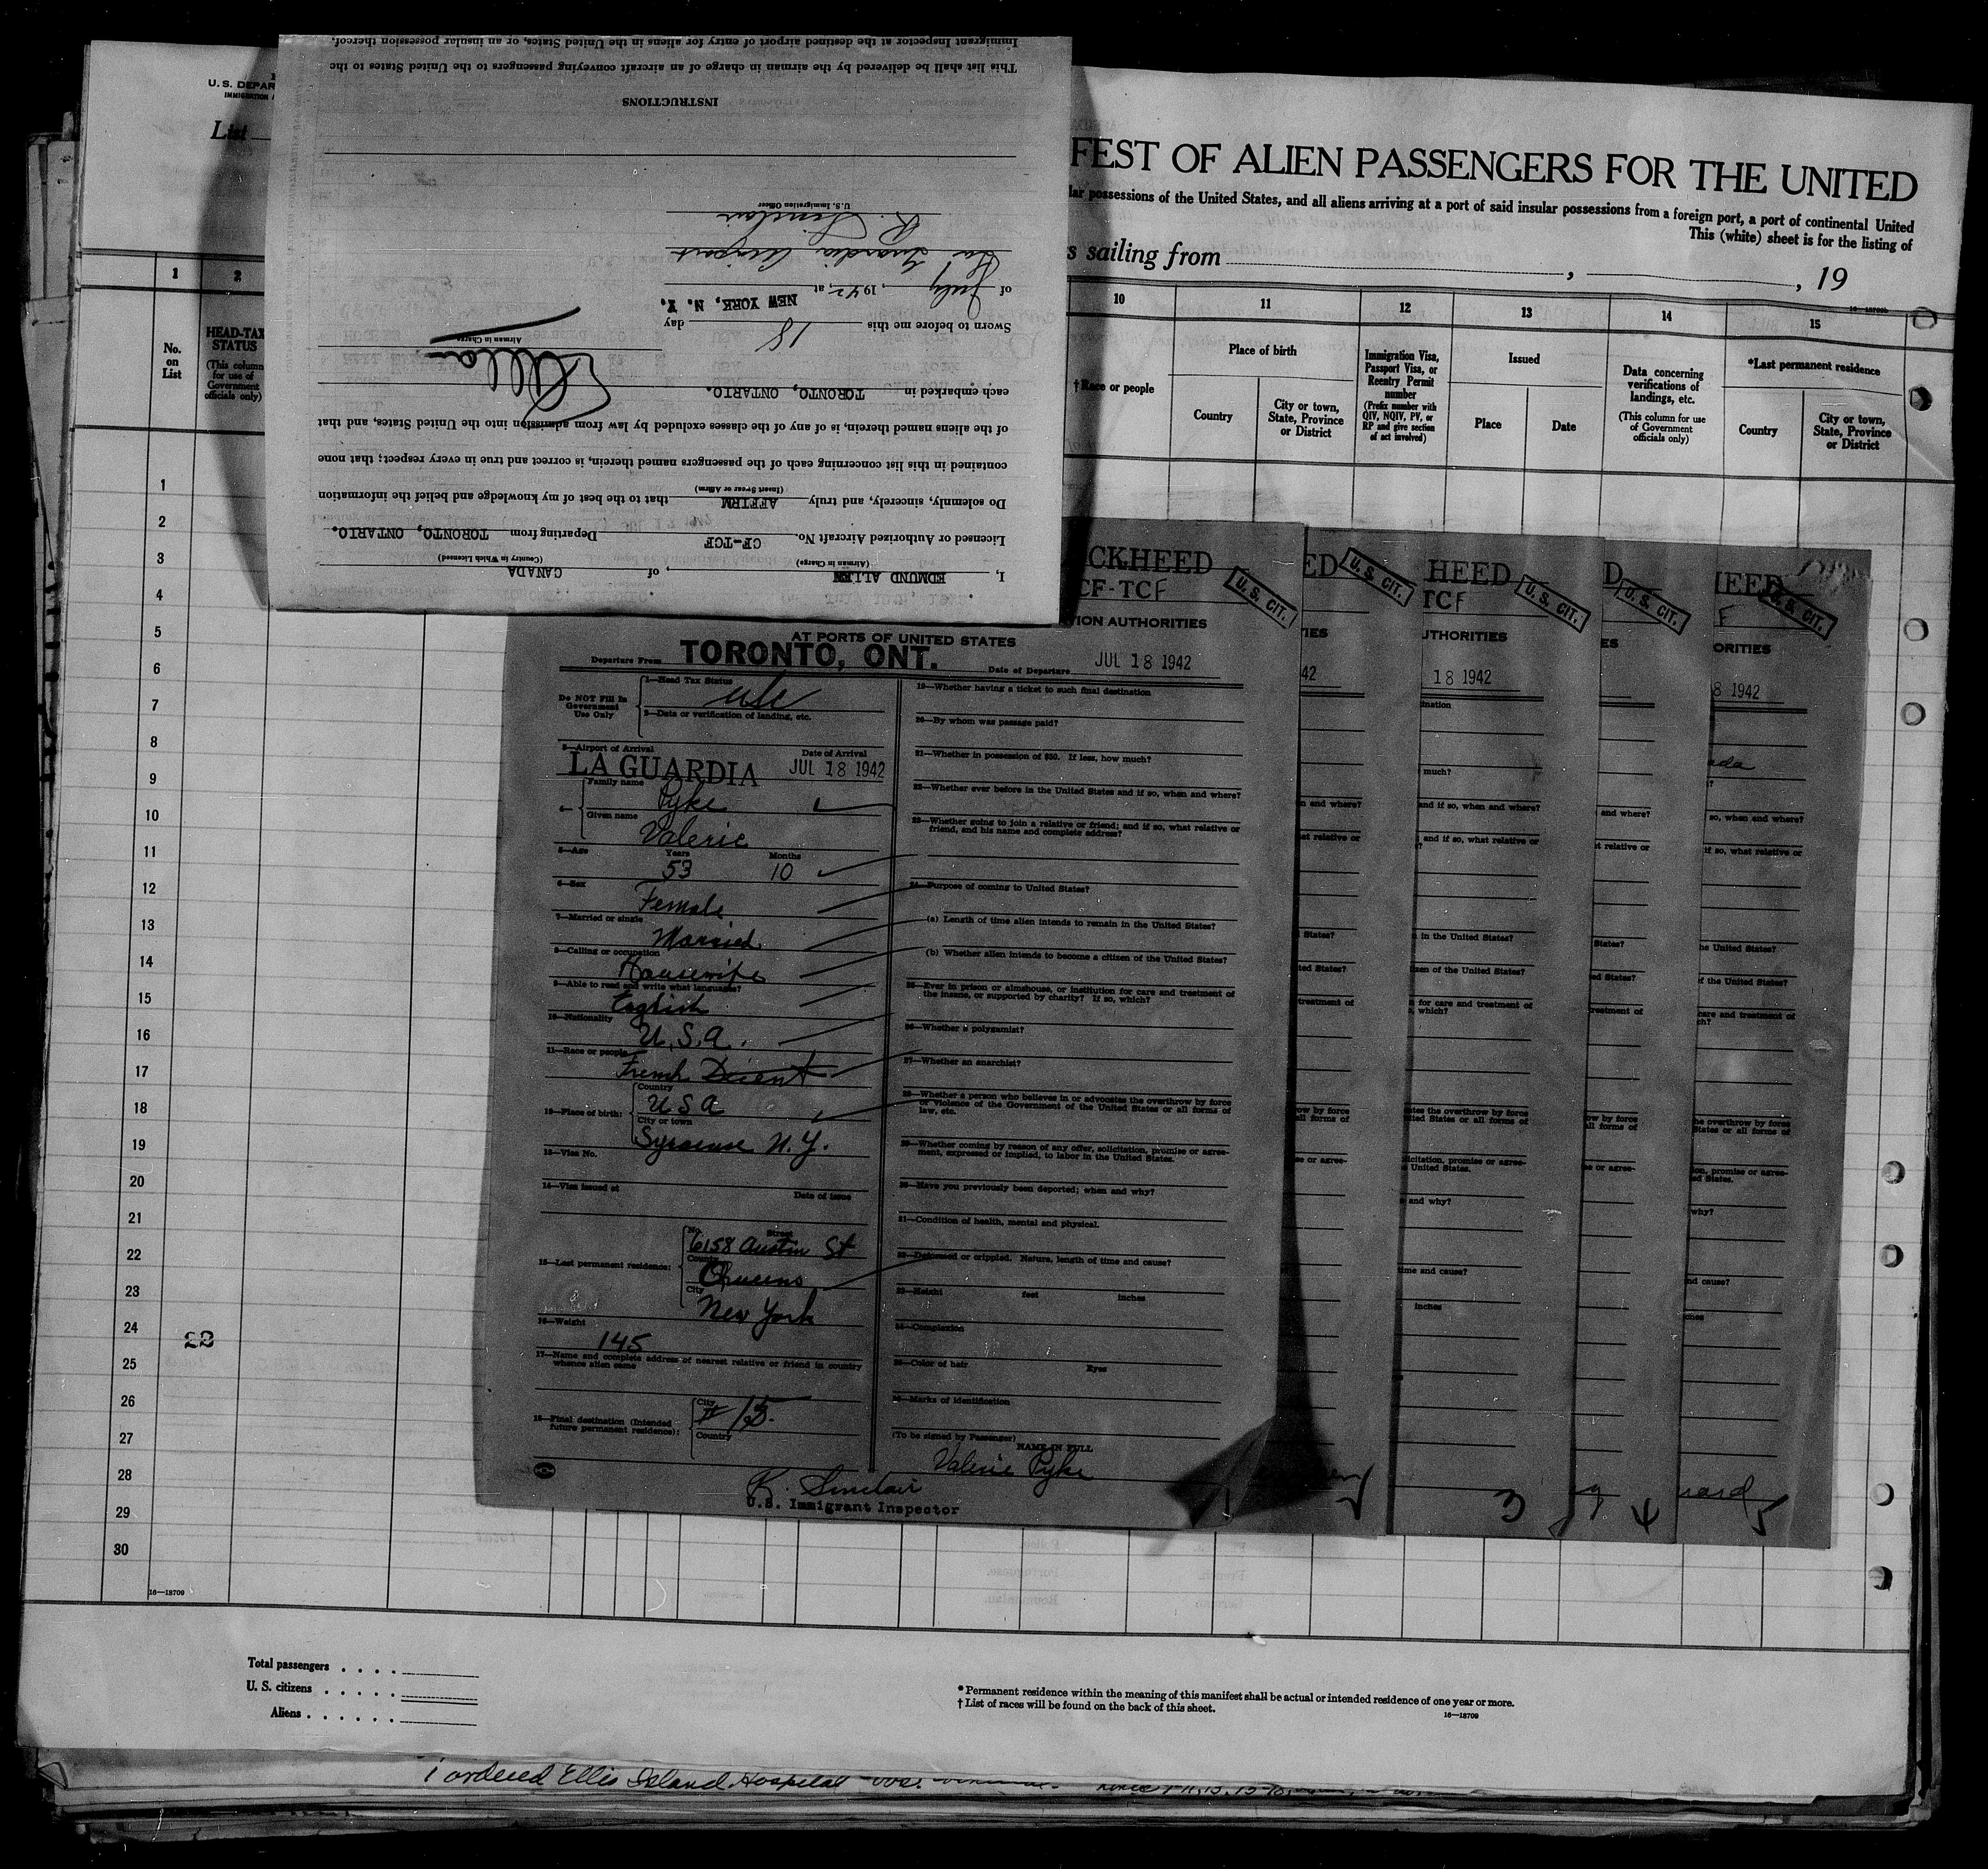 U. S. DEPAR
IMMIGRATION
List
FEST OF ALIEN PASSENGERS FOR THE UNITED
lar possessions of the United States, and all aliens arriving at a port of said insular possessions from a foreign port, a port of continental United
This (white) sheet is for the listing of
s sailing from , , 19
1 2 10 11 12 13 14 15
No. on List
HEAD-TAX STATUS
(This column for use of Government officials only)
† Race or people
Place of birth
Country
City or town, State, Province or District
Immigration Visa, Passport Visa, or Reentry Permit number
(Prefix number with QIV, NQIV, PV, or RP and give section of act involved)
Issued
Place
Date
Data concerning verifications of landings, etc.
(This column for use of Government officials only)
*Last permanent residence
Country
City or town, State, Province or District
I, EDMUND ALLEN, of CANADA
(Airman in Charge) (Country in Which Licensed)
Licensed or Authorized Aircraft No. CF-TCF Departing from TORONTO, ONTARIO.
Do solemnly, sincerely, and truly AFFIRM that to the best of my knowledge and belief the information
(Insert Swear or Affirm)
contained in this list concerning each of the passengers named therein, is correct and true in every respect; that none
of the aliens named therein, is of any of the classes excluded by law from admission into the United States, and that
each embarked in TORONTO, ONTARIO.
Airman in Charge
Sworn to before me this 18 day
of July, 1942, at NEW YORK, N. Y.
La Guardia Airport
K. Sinclair
U.S. Immigration Officer
INSTRUCTIONS
This list shall be delivered by the airman in charge of an aircraft conveying passengers to the United States to the
Immigrant Inspector at the destined airport of entry for aliens in the United States, or an insular possession thereof.
CKHEED
CF-TCF
U. S. CIT.
TION AUTHORITIES
AT PORTS OF UNITED STATES
Departure From TORONTO, ONT. Date of Departure JUL 18 1942
Do NOT Fill In Government Use Only
1—Head Tax Status
USC
2—Data or verification of landing, etc.
3—Airport of Arrival Date of Arrival
LA GUARDIA JUL 18 1942
4— Family name
Pyke
Given name
Valerie
5—Age Years Months
53 10
6—Sex
Female
7—Married or single
Married
8—Calling or occupation
Housewife
9—Able to read and write what languages?
English
10—Nationality
U.S.A.
11—Race or people
French
12—Place of birth: Country
USA
City or town
Syracuse N.Y.
13—Visa No.
14—Visa issued at Date of issue
15—Last permanent residence: No. Street
6158 Austin St
Country
Queens
City
New York
16—Weight
145
17—Name and complete address of nearest relative or friend in country
whence alien came
18—Final destination (Intended future permanent residence): City
# 15.
Country
19—Whether having a ticket to such final destination
20—By whom was passage paid?
21—Whether in possession of $50. If less, how much?
22—Whether ever before in the United States and if so, when and where?
23—Whether going to join a relative or friend; and if so, what relative or
friend, and his name and complete address?
24—Purpose of coming to United States?
(a) Length of time alien intends to remain in the United States?
(b) Whether alien intends to become a citizen of the United States?
25—Ever in prison or almshouse, or institution for care and treatment of
the insane, or supported by charity? If so, which?
26—Whether a polygamist?
27—Whether an anarchist?
28—Whether a person who believes in or advocates the overthrow by force
or violence of the Government of the United States or all forms of
law, etc.
29—Whether coming by reason of any offer, solicitation, promise or agree-
ment, expressed or implied, to labor in the United States.
30—Have you previously been deported; when and why?
31—Condition of health, mental and physical.
32—Deformed or crippled. Nature, length of time and cause?
33—Height feet inches
34—Complexion
35—Color of hair Eyes
36—Marks of identification
(To be signed by Passenger) NAME IN FULL
Valerie Pyke
K. Sinclair
U.S. Immigrant Inspector
ED
U. S. CIT.
HEED
TCF
U. S. CIT.
UTHORITIES
18 1942
D
U. S. CIT.
EED
F
U. S. CIT.
ORITIES
8 1942
1
2
3
4
5
6
7
8
9
10
11
12
13
14
15
16
17
18
19
20
21
22
23
24
25
26
27
28
29
30
22
16—18709
Total passengers
U. S. citizens
Aliens
* Permanent residence within the meaning of this manifest shall be actual or intended residence of one year or more.
† List of races will be found on the back of this sheet.
16—18709
1 ordered Ellis Island Hospital